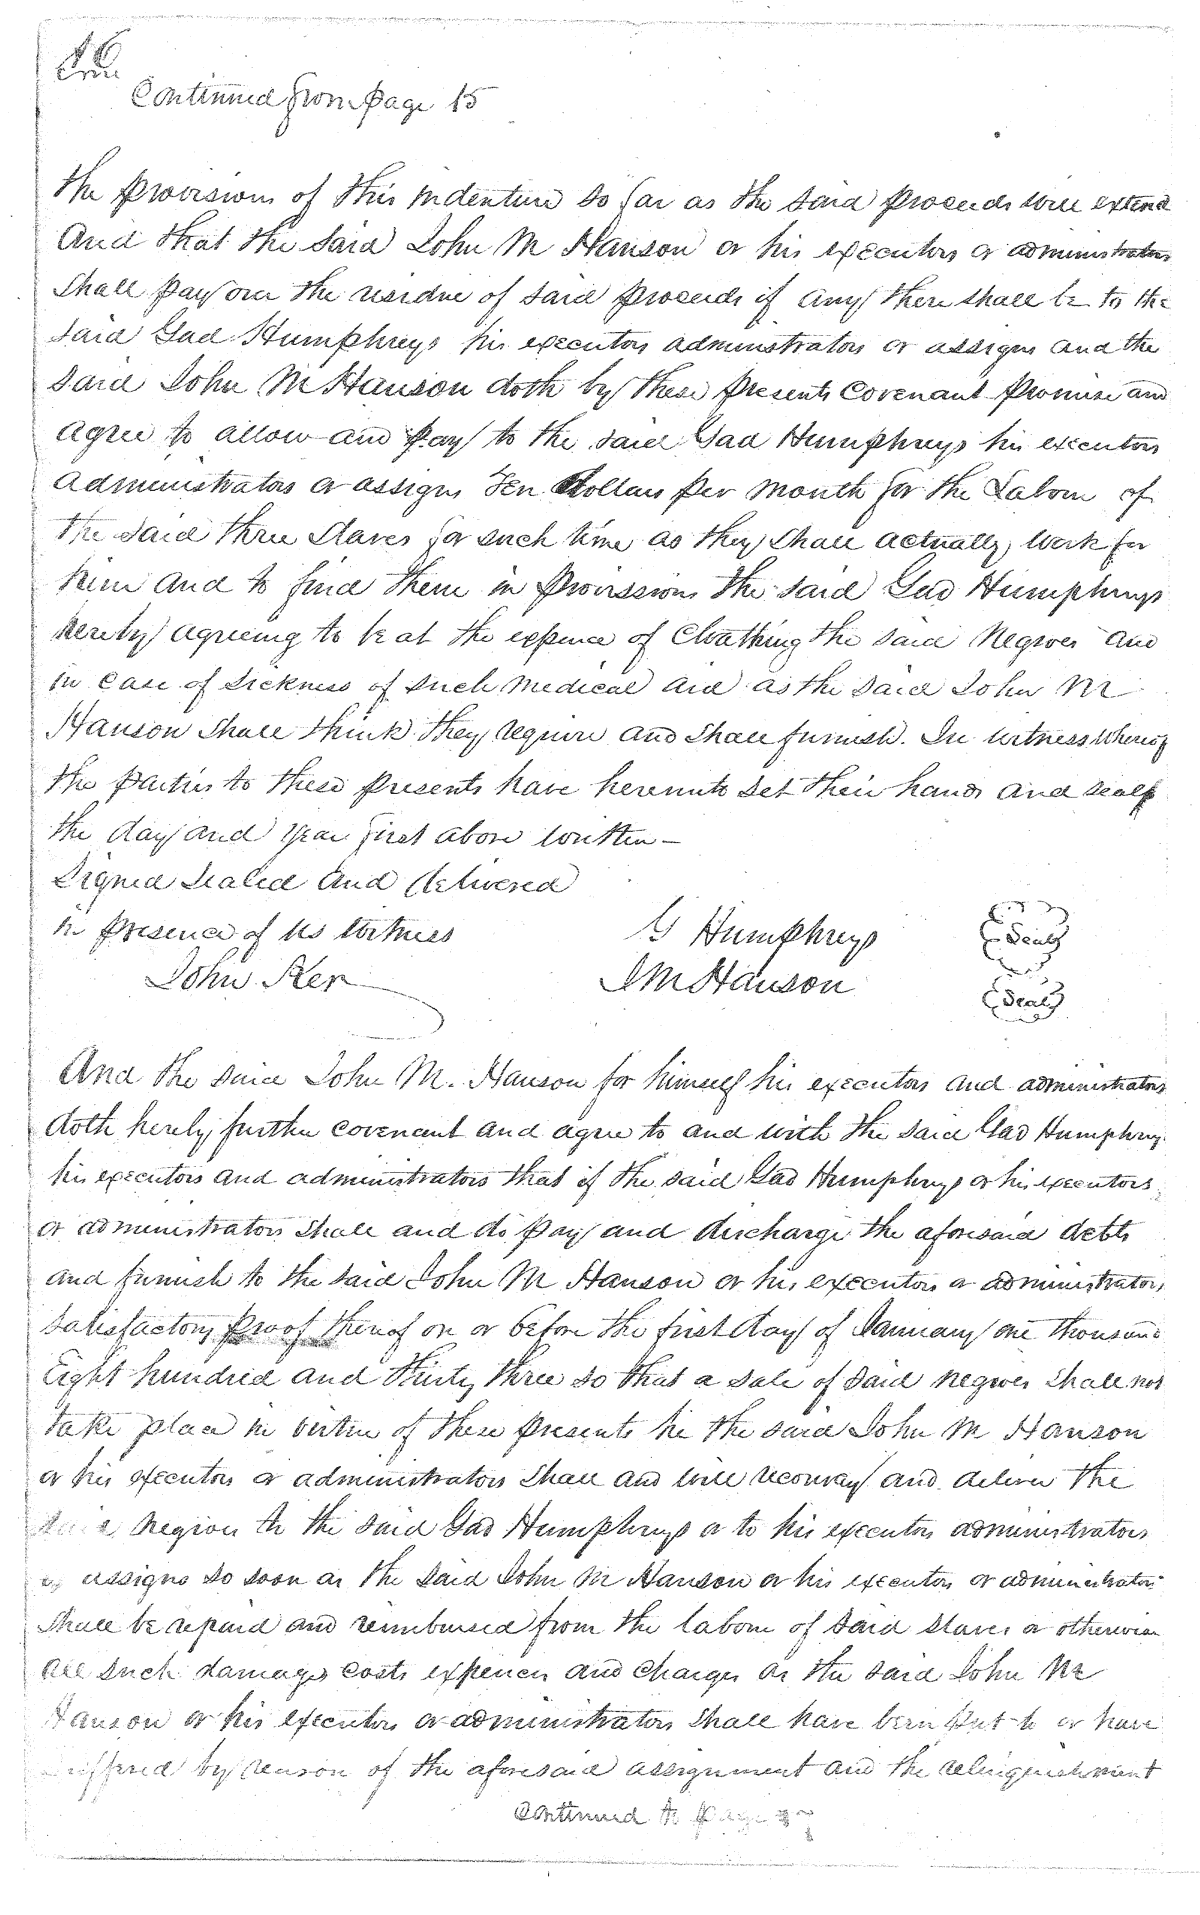 16
Continued from page 15
the provisions of this indenture so far as the said proceeds will extend
And that the said John M Hanson or his executors or administrators
shall pay over the residue of said proceeds if any there shall be to the
said Gad Humphreys his executors administrators or assigns and the
said John M Hanson doth by these presents covenant promise and
agree to allow and pay to the said Gad Humphreys his executors
administrators or assigns Ten Dollars per month for the Labour of
the said three slaves for such time as they shall actually work for
him and to find them in provissions the said Gad Humphreys
hereby agreeing to be at the expence of Cloathing the said Negroes and
in case of sickness of such medical aid as the said John M
Hanson shall think they require and shall furnish. In witness whereof
the parties to these presents have hereunto set their hands and seals
the day and year first above written —
Signed Sealed and delivered
in presence of us witness
G Humphreys Seal
John Ker
J M Hanson Seal
And the said John M. Hanson for himself his executors and administrators
doth hereby further covenant and agree to and with the said Gad Humphreys
his executors and administrators that if the said Gad Humphreys or his executors
or administrators shall and do pay and discharge the aforesaid debts
and furnish to the said John M Hanson or his executors or administrators
satisfactory proof thereof on or before the first day of January one thousand
Eight hundred and thirty three so that a sale of said negroes shall not
take place in virtue of these presents he the said John M Hanson
or his executors or administrators shall and will reconvey and deliver the
said Negroes to the said Gad Humphreys or to his executors administrators
or assigns so soon as the said John M Hanson or his executors or administrators
shall be repaid and reimbursed from the labour of said slaves or otherwise
all such damages costs expences and charges as the said John M
Hanson or his executors or administrators shall have been put to or have
suffered by reason of the aforesaid assignment and the relinquishment
Continued to page